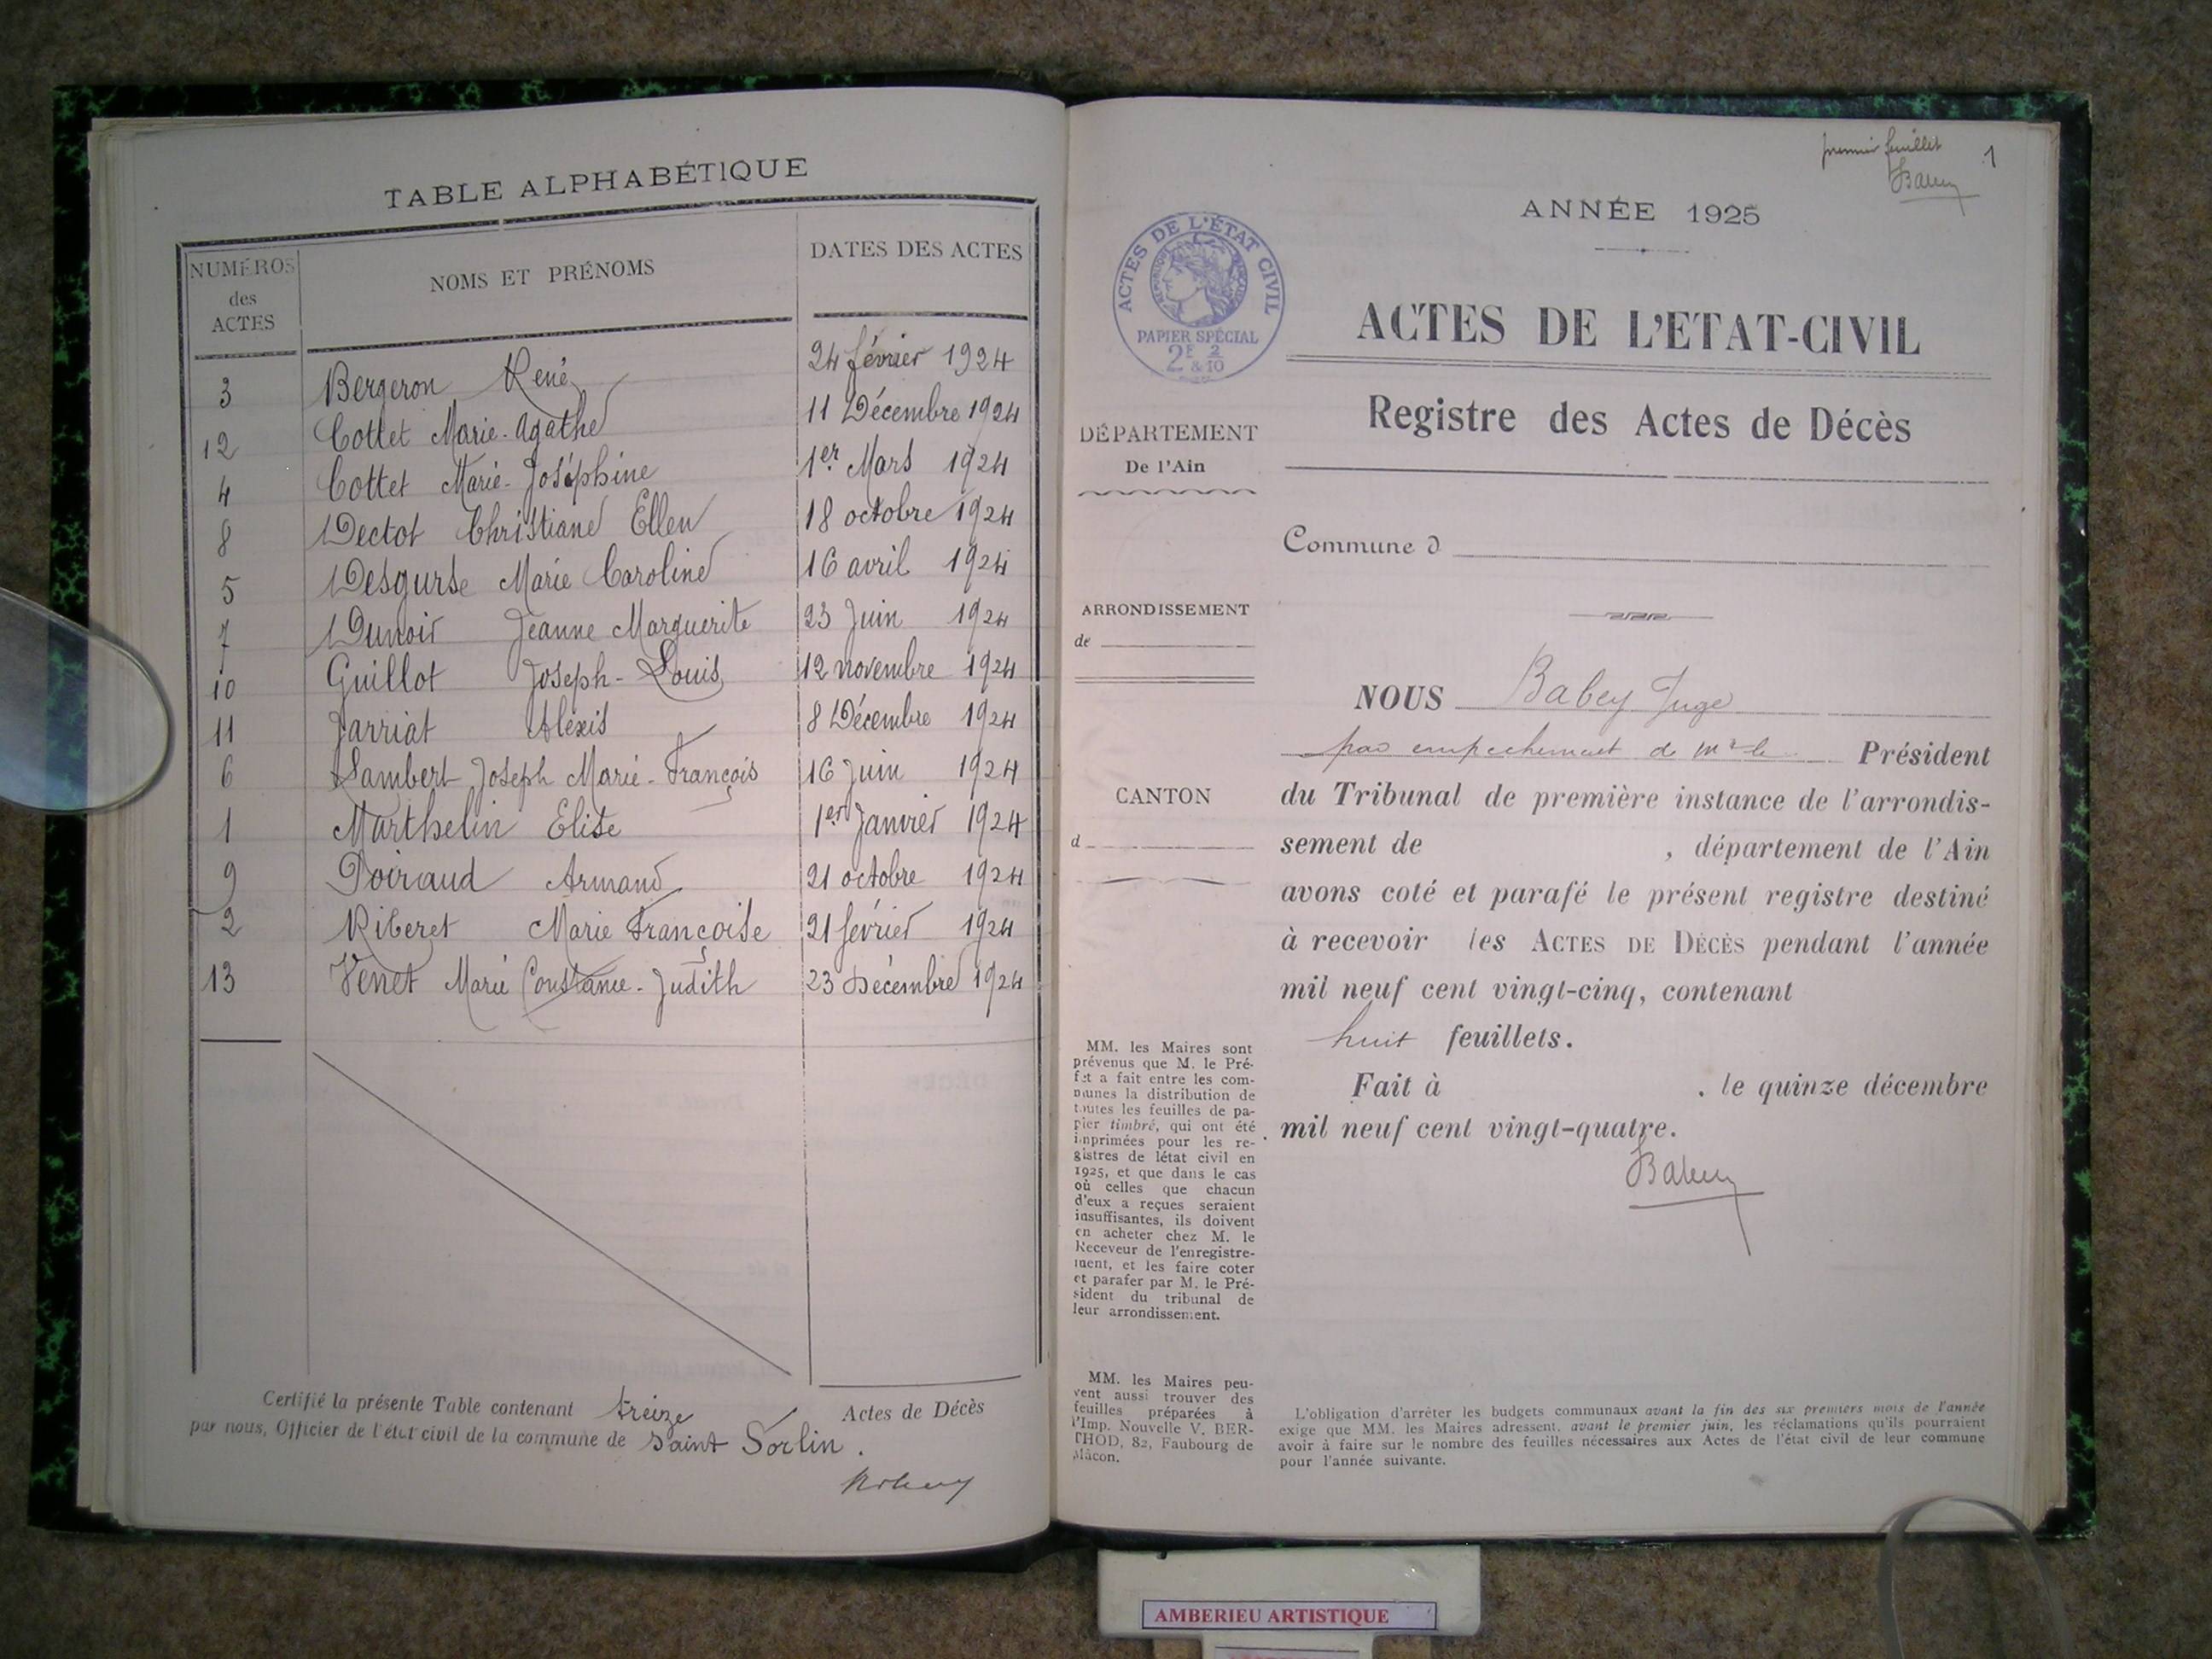 TABLE ALPHABÉTIQUE
NUMÉROS
des
ACTES
NOMS ET PRÉNOMS
DATES DES ACTES
3 Bergeron René 24 février 1924
12 Cottet Marie-Agathe 11 Décembre 1924
4 Cottet Marie-Joséphine 1er Mars 1924
8 Dectot Christiane Ellen 18 octobre 1924
5 Desgurse Marie Caroline 16 avril 1924
7 Dunoir Jeanne Marguerite 23 Juin 1924
10 Guillot Joseph-Louis 12 novembre 1924
11 Jarriat Alexis 8 Décembre 1924
6 Lambert Joseph Marie-François 16 Juin 1924
1 Marthelin Elise 1er Janvier 1924
9 Poiraud Armand 21 octobre 1924
2 Riberet Marie Françoise 21 février 1924
13 Venet Marie Constance-Judith 23 Décembre 1924
Certifié la présente Table contenant treize Actes de Décès
par nous, Officier de l'état civil de la commune de Saint Sorlin.
premier feuillet 1
Babey
ANNÉE 1925
ACTES DE L'ÉTAT CIVIL
RÉPUBLIQUE FRANÇAISE
PAPIER SPÉCIAL
2F & 2/10
ACTES DE L'ETAT-CIVIL
Registre des Actes de Décès
DÉPARTEMENT
De l'Ain
Commune d
ARRONDISSEMENT
de
CANTON
d
NOUS Babey Juge
par empechement de Mr le Président
du Tribunal de première instance de l'arrondis-
sement de , département de l'Ain
avons coté et parafé le présent registre destiné
à recevoir les ACTES DE DÉCÈS pendant l'année
mil neuf cent vingt-cinq, contenant
huit feuillets.
Fait à , le quinze décembre
mil neuf cent vingt-quatre.
Babey
MM. les Maires sont
prévenus que M. le Pré-
fet a fait entre les com-
munes la distribution de
toutes les feuilles de pa-
pier timbré, qui ont été
imprimées pour les re-
gistres de létat civil en
1925, et que dans le cas
où celles que chacun
d'eux a reçues seraient
insuffisantes, ils doivent
en acheter chez M. le
Receveur de l'enregistre-
ment, et les faire coter
et parafer par M. le Pré-
sident du tribunal de
leur arrondissement.
MM. les Maires peu-
vent aussi trouver des
feuilles préparées à
l'Imp. Nouvelle V. BER-
THOD, 82, Faubourg de
Mâcon.
L'obligation d'arrêter les budgets communaux avant la fin des six premiers mois de l'année
exige que MM. les Maires adressent, avant le premier juin, les réclamations qu'ils pourraient
avoir à faire sur le nombre des feuilles nécessaires aux Actes de l'état civil de leur commune
pour l'année suivante.
AMBERIEU ARTISTIQUE